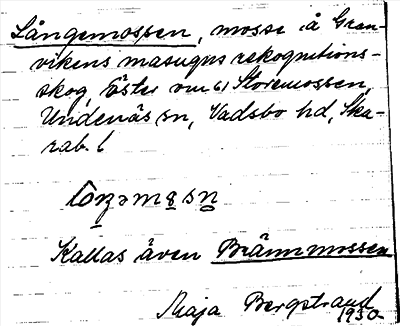 Långemossen, mosse å Gran-
vikens masugns rekognitions-
skog, Öster om 61 Storemossen,
Undenäs sn, Vadsbo hd, Ska-
rab. l
Kallas även Brännmossen
Maja Bergstrand
1930